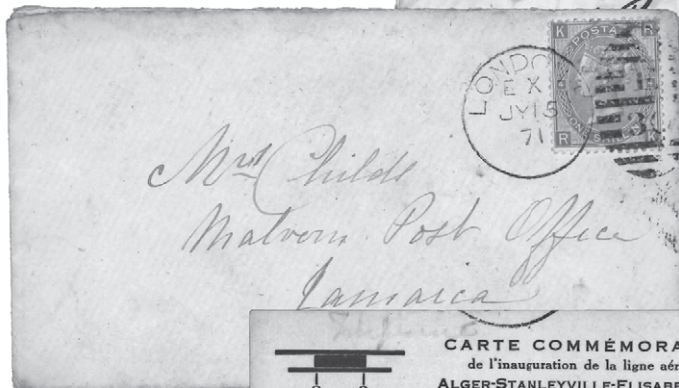 K POSTA R
LONDO
E X
JY 15
71
R ONE K
Mrs Childe
Malvern Post Office
Jamaica
CARTE COMMÉMORA
de l'inauguration de la ligne aér
ALGER-STANLEYVILLE-ELISABE